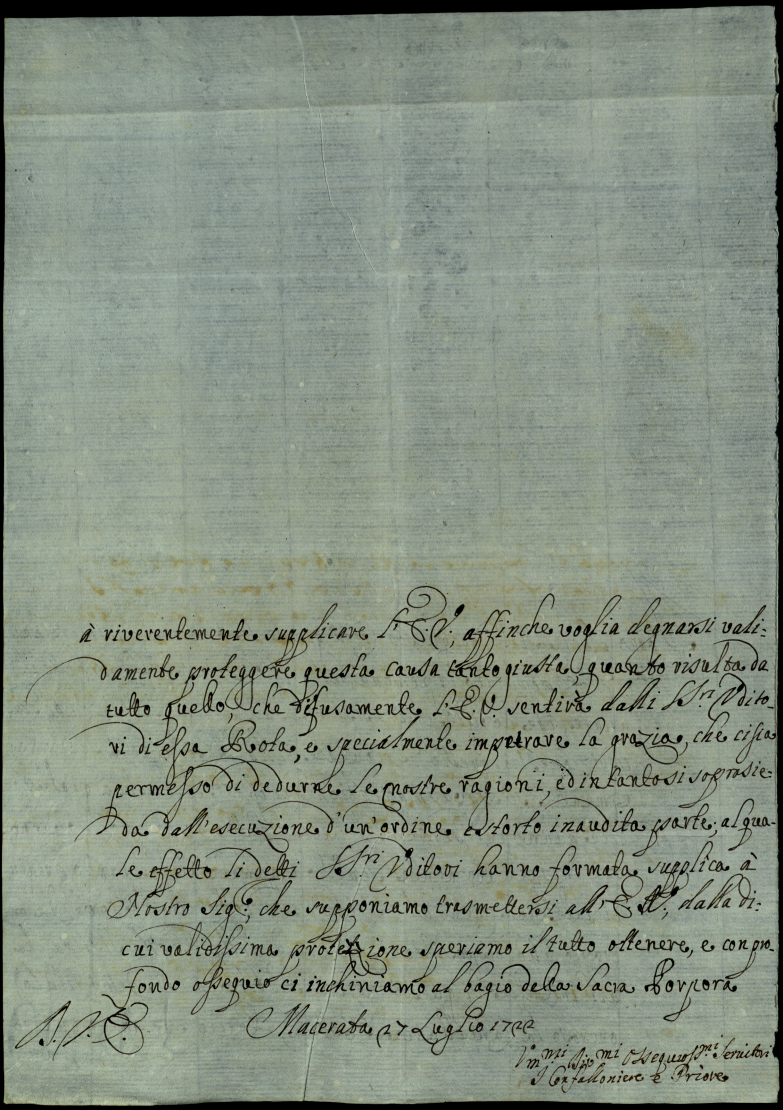 à riverentemente supplicare l'E.V., affinche voglia degnarsi vali-
damente proteggere questa causa tanto giusta, quanto risulta da
tutto quello, che difusamente l'E.V. sentirà dalli SS.ri Udito-
ri di essa Rota, e specialmente impetrare la grazia, che ci sia
permesso di dedurne le nostre ragioni, ed intanto si soprasie-
da dall'esecuzione d'un'ordine estorto inaudita parte; al qua-
le effetto li detti SS.ri Uditori hanno formata supplica à
Nostro Sig.e, che supponiamo trasmettersi all'E.V., dalla di
cui validissima protezione speriamo il tutto ottenere, e con pro-
fondo ossequio ci inchiniamo al bagio della Sacra Porpora
Macerata 27 Luglio 1722
Ossequios.mi Servitori
Il Confalloniere e Priore